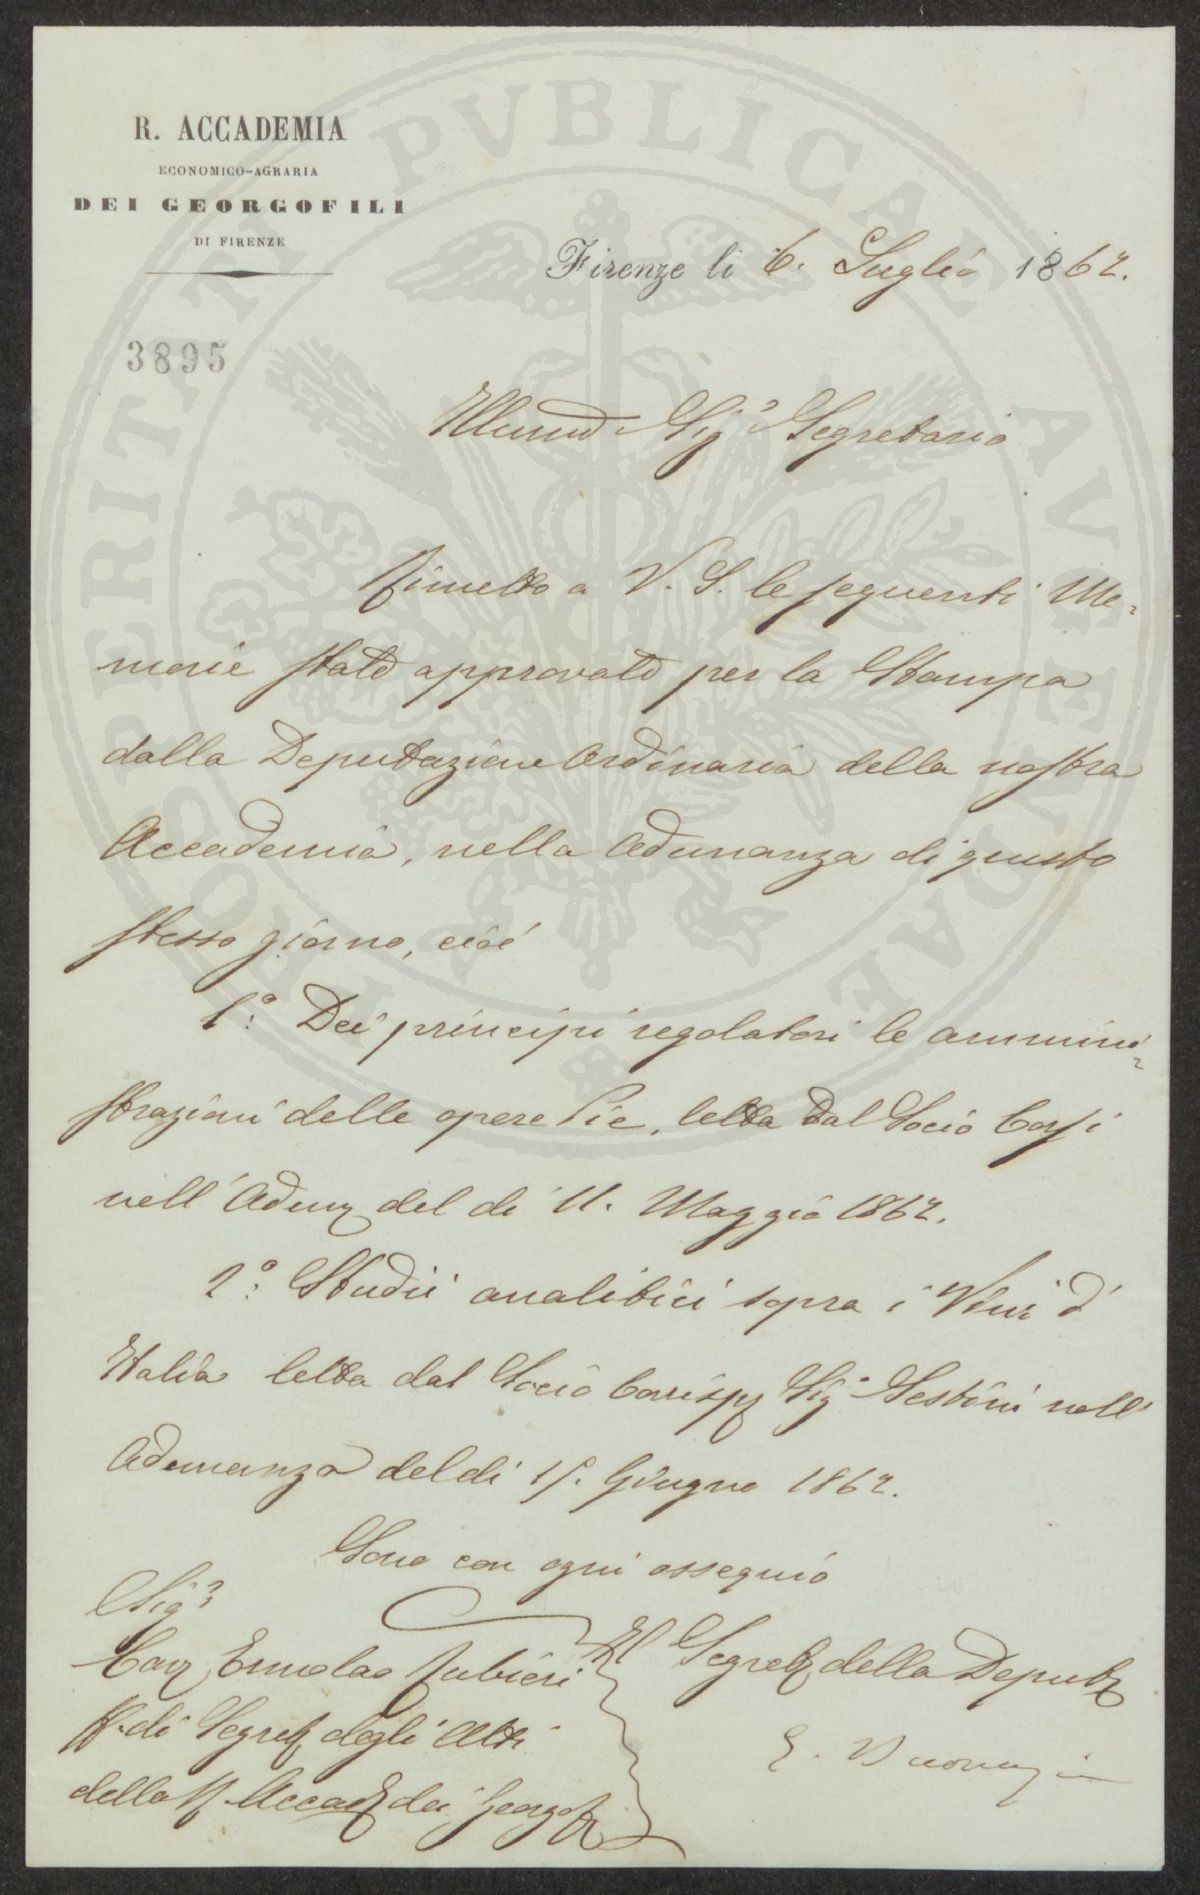 PROSPERITATI PVBLICAE AVGENDAE
R. ACCADEMIA
ECONOMICO-AGRARIA
DEI GEORGOFILI
DI FIRENZE
Firenze li 6. Luglio 1862.
3895
Illmo Sigr Segretario
Rimetto a V. S. le seguenti Me-
morie state approvate per la Stampa
dalla Deputazione Ordinaria della nostra
Accademia, nella Adunanza di questo
stesso giorno, cioè
1º. Dei principi regolatori le ammini-
strazioni delle opere Pie, letta dal Socio Corsi
nell' Adunz del dì 11. Maggio 1862.
2º. Studii analitici sopra i Vini d'
Italia letta dal Socio Corrispz Sigr Sestini nell'
Adunanza del dì 15. Giugno 1862.
Sono con ogni ossequio
Sigr
Cav Ermolao Rubieri
ff. di Segretz degli Atti
della R. Accadz dei Georgofz
Il Segretz della Deputz
E.